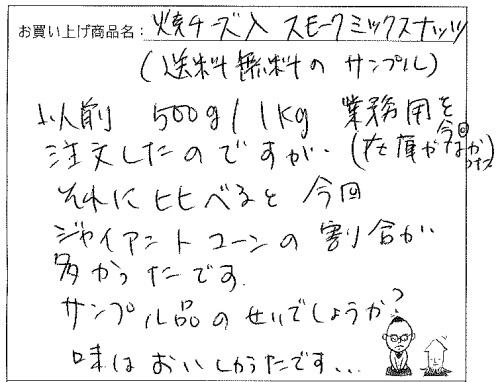 お買い上げ商品名：焼チーズ入 スモークミックスナッツ
（送料無料のサンプル）
以前 500g/1Kg 業務用を
注文したのですが、（在庫が今回なかった）
それに比べると今回
ジャイアントコーンの割合が
多かったです。
サンプル品のせいでしょうか？
味はおいしかったです...